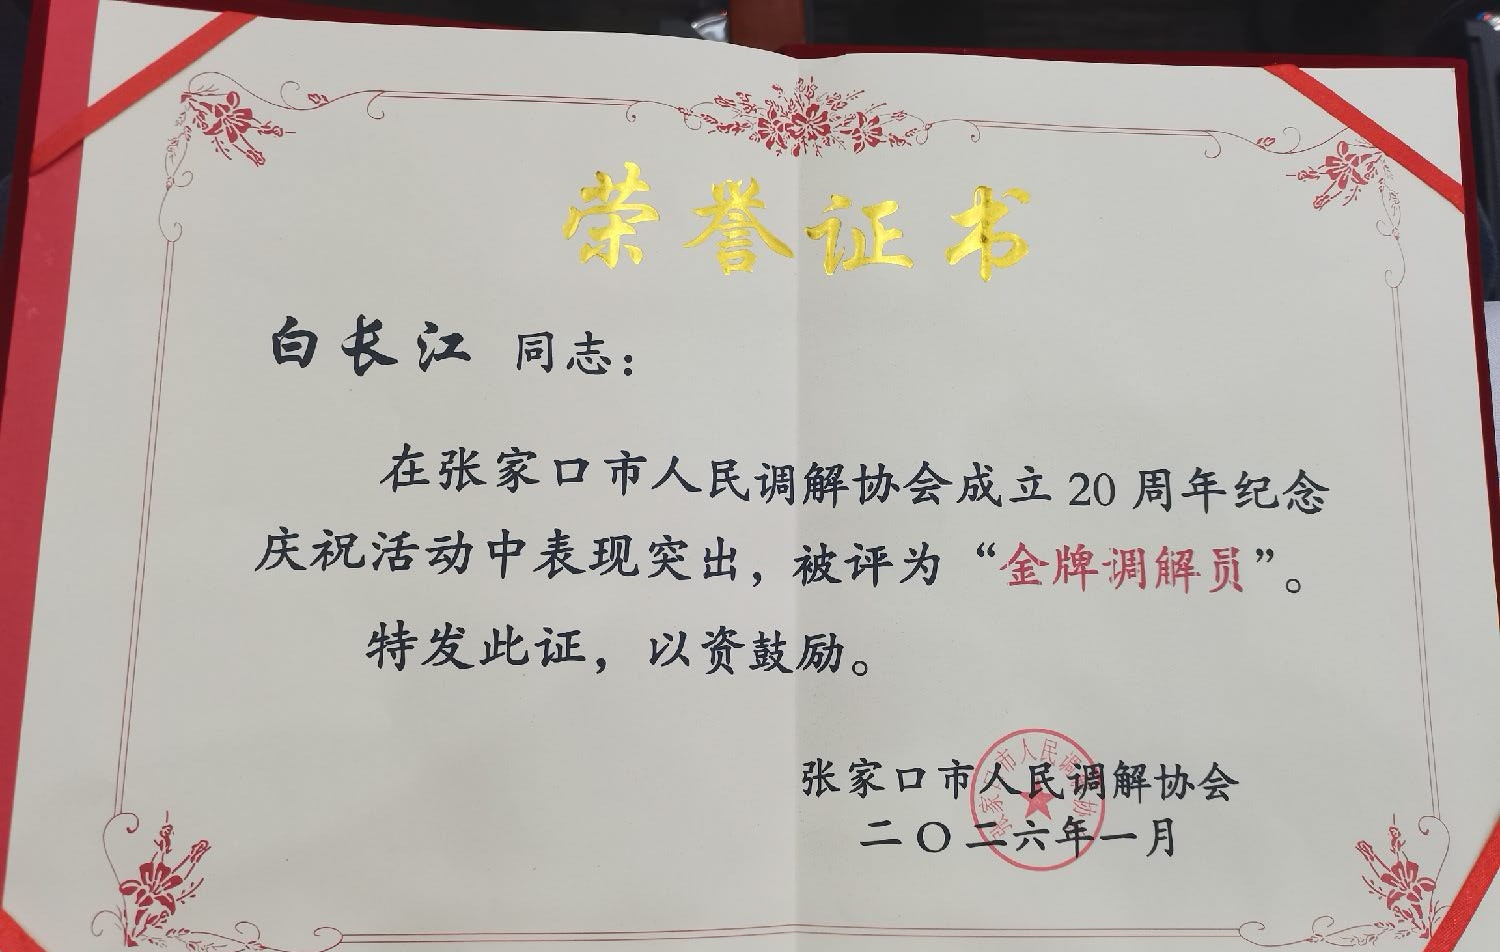 荣誉证书
白长江 同志：
在张家口市人民调解协会成立20周年纪念
庆祝活动中表现突出，被评为“金牌调解员”。
特发此证，以资鼓励。
张家口市人民调解协会
二〇二六年一月
张家口市人民调解协